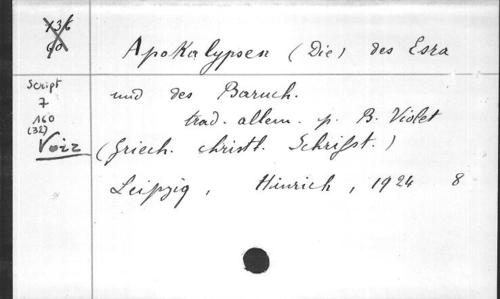 736
90
Apokalypsen (Die) des Esra
Script
7
160
(32)
Voir
und des Baruch.
trad. allem. p. B. Violet
(Griech. christl. Schrifst.)
Leipzig, Hinrich, 1924 8